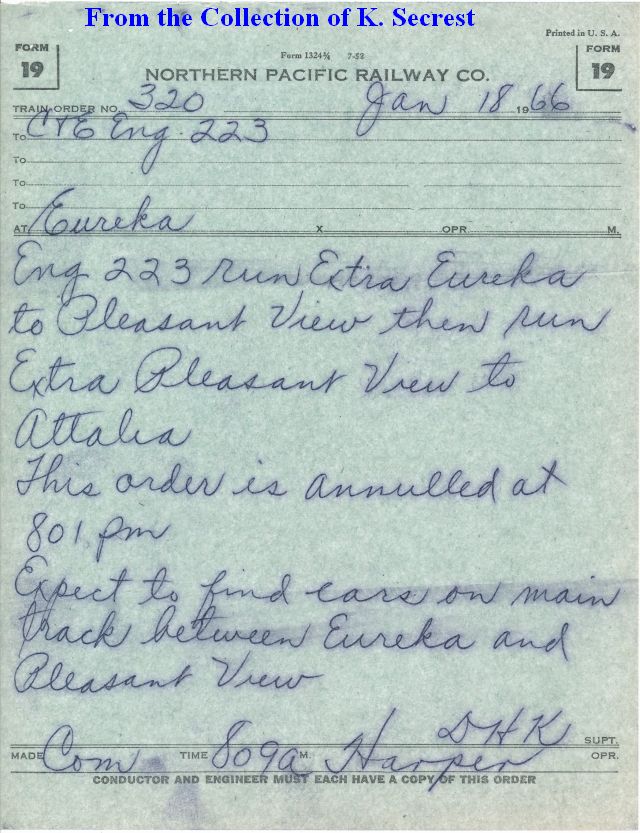 From the Collection of K. Secrest
Printed in U. S. A.
FORM 19
Form 1324¾ 7-52
FORM 19
NORTHERN PACIFIC RAILWAY CO.
TRAIN ORDER NO. 320 Jan 18 1966
To C+E Eng 223
To
To
To
AT Eureka X OPR. M.
Eng 223 run Extra Eureka
to Pleasant View then run
Extra Pleasant View to
Attalia
This order is annulled at
801 pm
Expect to find cars on main
track between Eureka and
Pleasant View
DHK SUPT.
MADE Com TIME 809a M. Harper OPR.
CONDUCTOR AND ENGINEER MUST EACH HAVE A COPY OF THIS ORDER